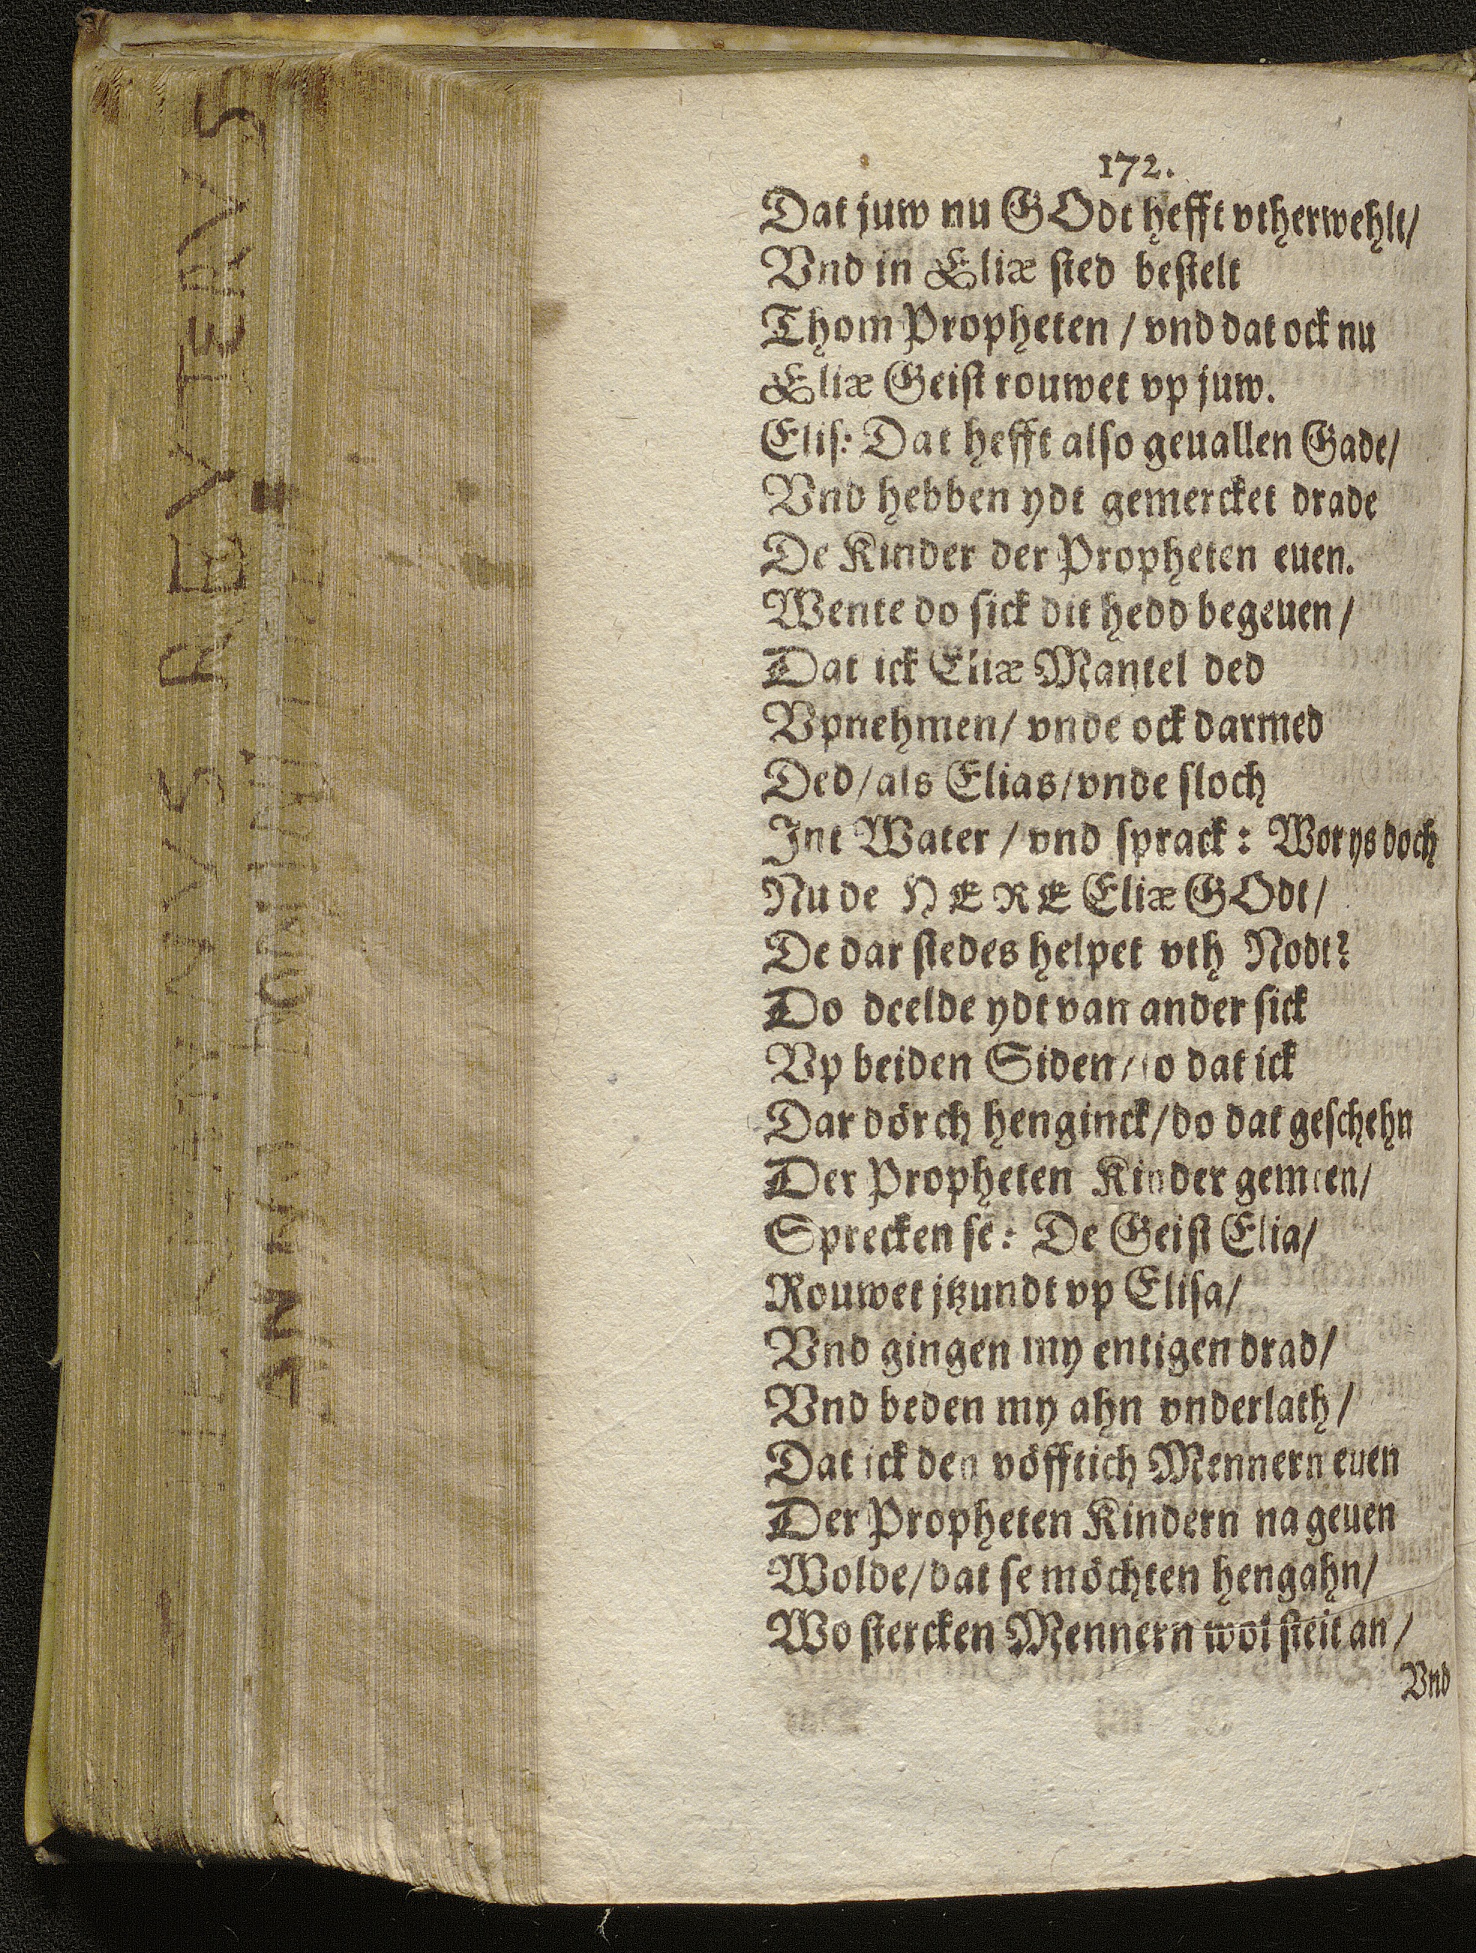 172.
Dat juw nu GOdt hefft vtherwehlt/
Vnd in Eliæ sted bestelt
Thom Propheten / vnd dat ock nu
Eliæ Geist rouwet vp juw.
Elis: Dat hefft also geuallen Gade/
Vnd hebben ydt gemercket drade
De Kinder der Propheten euen.
Wente do sick dit hedd begeuen/
Dat ick Eliæ Mantel ded
Vpnehmen/ vnde ock darmed
Ded/als Elias/vnde sloch
Int Water / vnd sprack: Wor ys doch
Nu de HERE Eliæ GOdt/
De dar stedes helpet vth Nodt?
Do deelde ydt van ander sick
Vp beiden Siden/so dat ick
Dar dörch henginck/do dat geschehn
Der Propheten Kinder gemeen/
Sprecken se: De Geist Elia/
Rouwet jtzundt vp Elisa/
Vnd gingen my entigen drad/
Vnd beden my ahn vnderlath/
Dat ick den vöfftich Mennern euen
Der Propheten Kindern na geuen
Wolde/dat se möchten hengahn/
Wo stercken Mennern wol steit an/
Vnd
REVTERVS
ANNO DOMINI